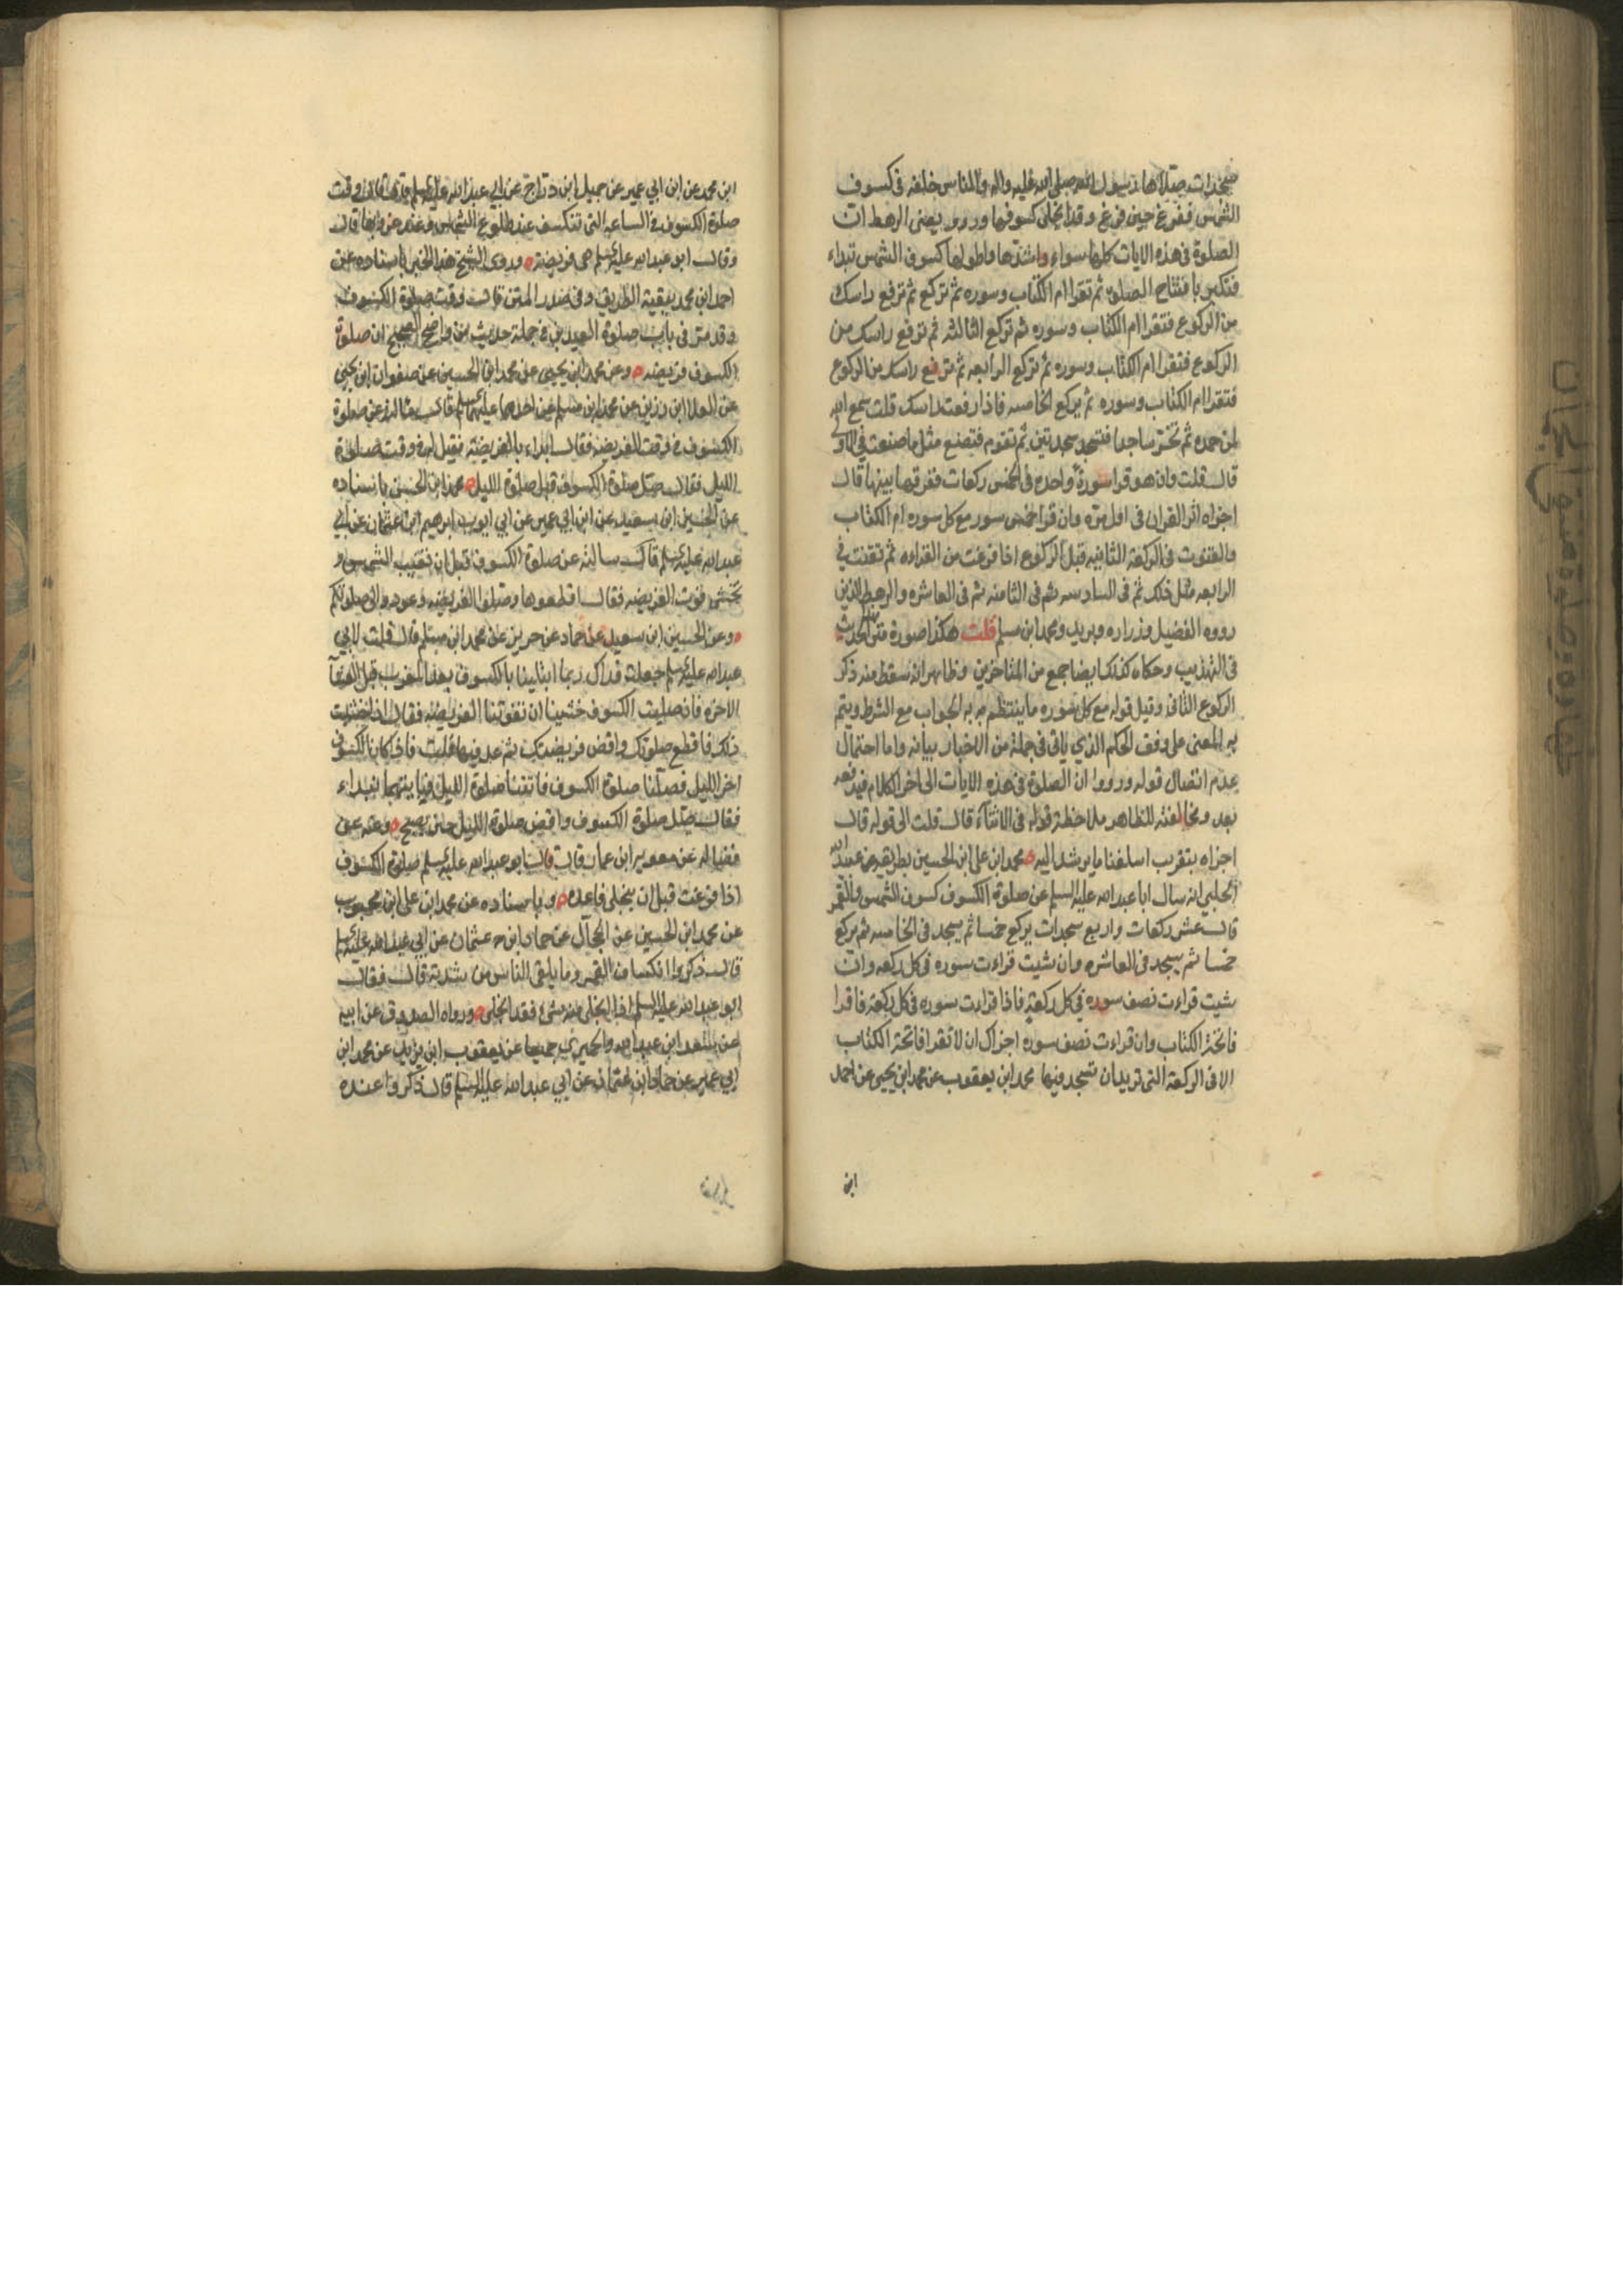 سجدات صلاها رسول الله صلى الله عليه واله والناس خلفه فى كسوف
الشمس ففرغ حين فرغ وقد انجلى كسوفها ورووا يعنى الرهط ان
الصلوة فى هذه الايات كلها سواء واشدها واطولها كسوف الشمس تبداء
فتكبر بافتتاح الصلوة ثم تقرا ام الكتاب وسوره ثم تركع ثم ترفع راسك
من الركوع فتقرا ام الكتاب وسوره ثم تركع الثالثه ثم ترفع راسك من
الركوع فتقرا ام الكتاب وسوره ثم تركع الرابعه ثم ترفع راسك من الركوع
فتقرا ام الكتاب وسوره ثم تركع الخامسه فاذا رفعت راسك قلت سمع الله
لمن حمده ثم تخر ساجدا فتسجد سجدتين ثم تقوم فتصنع مثل ما صنعت فى الاولى
قال قلت وان هو قرا سورة واحده فى الخمس ركعات ففرقها بينها قال
اجزاه ام القران فى اول مره وان قرا خمس سور مع كل سوره ام الكتاب
والقنوت فى الركعة الثانيه قبل الركوع اذا فرغت من القراءه ثم تقنت فى
الرابعه مثل ذلك ثم فى السادسه ثم فى الثامنه ثم فى العاشره والرهط الذين
رووه الفضيل وزراره وبريد ومحمد ابن مسلم قلت هكذا صورة متن الحديث
فى التهذيب وحكاه كذلك ايضا جمع من المتاخرين وظاهر انه سقط منه ذكر
الركوع الثانى وقيل قوله مع كل سوره ما ينتظم به الجواب مع الشرط ويتم
به المعنى على وفق الحكم الذي ياتى فى جملة من الاخبار بيانه واما احتمال
عدم اتصال قوله ورووا ان الصلوة فى هذه الايات الى اخر الكلام فيدفعه
بعد ومخالفته للظاهر ملاحظة قوله فى الاثناء قال قلت الى قوله قال
اجزاه بتقريب اسلفنا ما يرشد اليه محمد ابن على ابن الحسين بطريقه عن عبيد الله
الحلبي انه سال ابا عبد الله عليه السلم عن صلوة الكسوف كسوف الشمس والقمر
قال عشر ركعات واربع سجدات يركع خمسا ثم يسجد فى الخامسه ثم يركع
خمسا ثم يسجد فى العاشره وان شيت قراءت سوره فى كل ركعه وان
شيت قراءت نصف سوره فى كل ركعة فاذا قراءت سوره فى كل ركعة فاقرا
فاتحة الكتاب وان قراءت نصف سوره اجزاك ان لا تقرا فاتحة الكتاب
الا فى الركعة التى تريد ان تسجد فيها محمد ابن يعقوب عن محمد ابن يحيى عن احمد
ابن
ابن محمد عن ابن ابي عمير عن جميل ابن دراج عن ابي عبد الله عليه السلم قال وقت
صلوة الكسوف فى الساعه التى تنكسف عند طلوع الشمس وعند غروبها قال
وقال ابو عبد الله عليه السلم هى فريضة وروى الشيخ هذا الخبر باسناده عن
احمد ابن محمد ببقية الطريق وفى صدر المتن قال وقت صلوة الكسوف
وقد مر فى باب صلوة العيدين فى جملة حديث من واضح الصحيح ان صلوة
الكسوف فريضه وعن محمد ابن يحيى عن محمد ابن الحسين عن صفوان ابن يحيى
عن العلا ابن رزين عن محمد ابن مسلم عن احدهما عليهما السلم قال سالته عن صلوة
الكسوف فى وقت الفريضه فقال ابداء بالفريضة فقيل له فى وقت صلوة
الليل فقال صل صلوة الكسوف قبل صلوة الليل محمد ابن الحسن باسناده
عن الحسين ابن سعيد عن ابن ابي عمير عن ابي ايوب ابراهيم ابن عثمان عن ابي
عبد الله عليه السلم قال سالته عن صلوة الكسوف قبل ان تغيب الشمس و
نخشى فوت الفريضه فقال اقطعوها وصلوا الفريضه وعودوا الى صلوتكم
وعن الحسين ابن سعيد عن حماد عن حريز عن محمد ابن مسلم قال قلت لابي
عبد الله عليه السلم جعلت فداك ربما ابتلينا بالكسوف بعد المغرب قبل العشآ
الاخره فان صليت الكسوف خشينا ان تفوتنا الفريضه فقال اذا خشيت
ذلك فاقطع صلوتك واقض فريضتك ثم عد فيها قلت فاذا كان الكسوف
اخر الليل فصلينا صلوة الكسوف فاتتنا صلوة الليل فبايتهما نبداء
فقال صل صلوة الكسوف واقض صلوة الليل حين تصبح وعنه عن
فضاله عن معويه ابن عمار قال قال ابو عبد الله عليه السلم صلوة الكسوف
اذا فرغت قبل ان ينجلى فاعد وباسناده عن محمد ابن على ابن محبوب
عن محمد ابن الحسين عن الحجال عن حماد ابن عثمان عن ابي عبد الله عليه السلم
قال ذكروا انكساف القمر وما يلقى الناس من شدته قال فقال
ابو عبد الله عليه السلم اذا انجلى منه شئ فقد انجلى ورواه الصدوق عن ابيه
عن سعد ابن عبد الله والحميري جميعا عن يعقوب ابن يزيد عن محمد ابن
ابي عمير عن حماد ابن عثمان عن ابي عبد الله عليه السلم قال ذكروا عنده